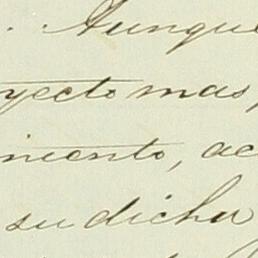 .. Aunque
yecto mas
miento, ac
su dicha